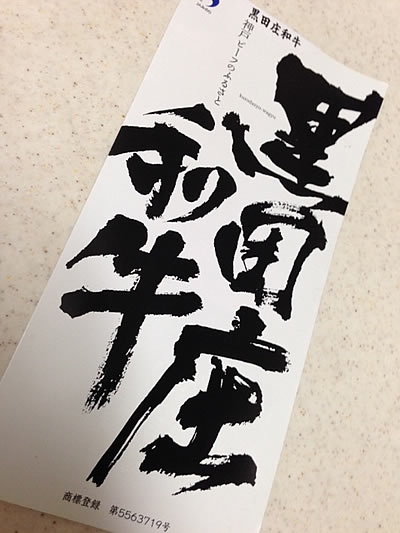 黒田庄和牛
神戸ビーフのふるさと
kurodasyo wagyu
黒田庄
和牛
商標登録 第5563719号